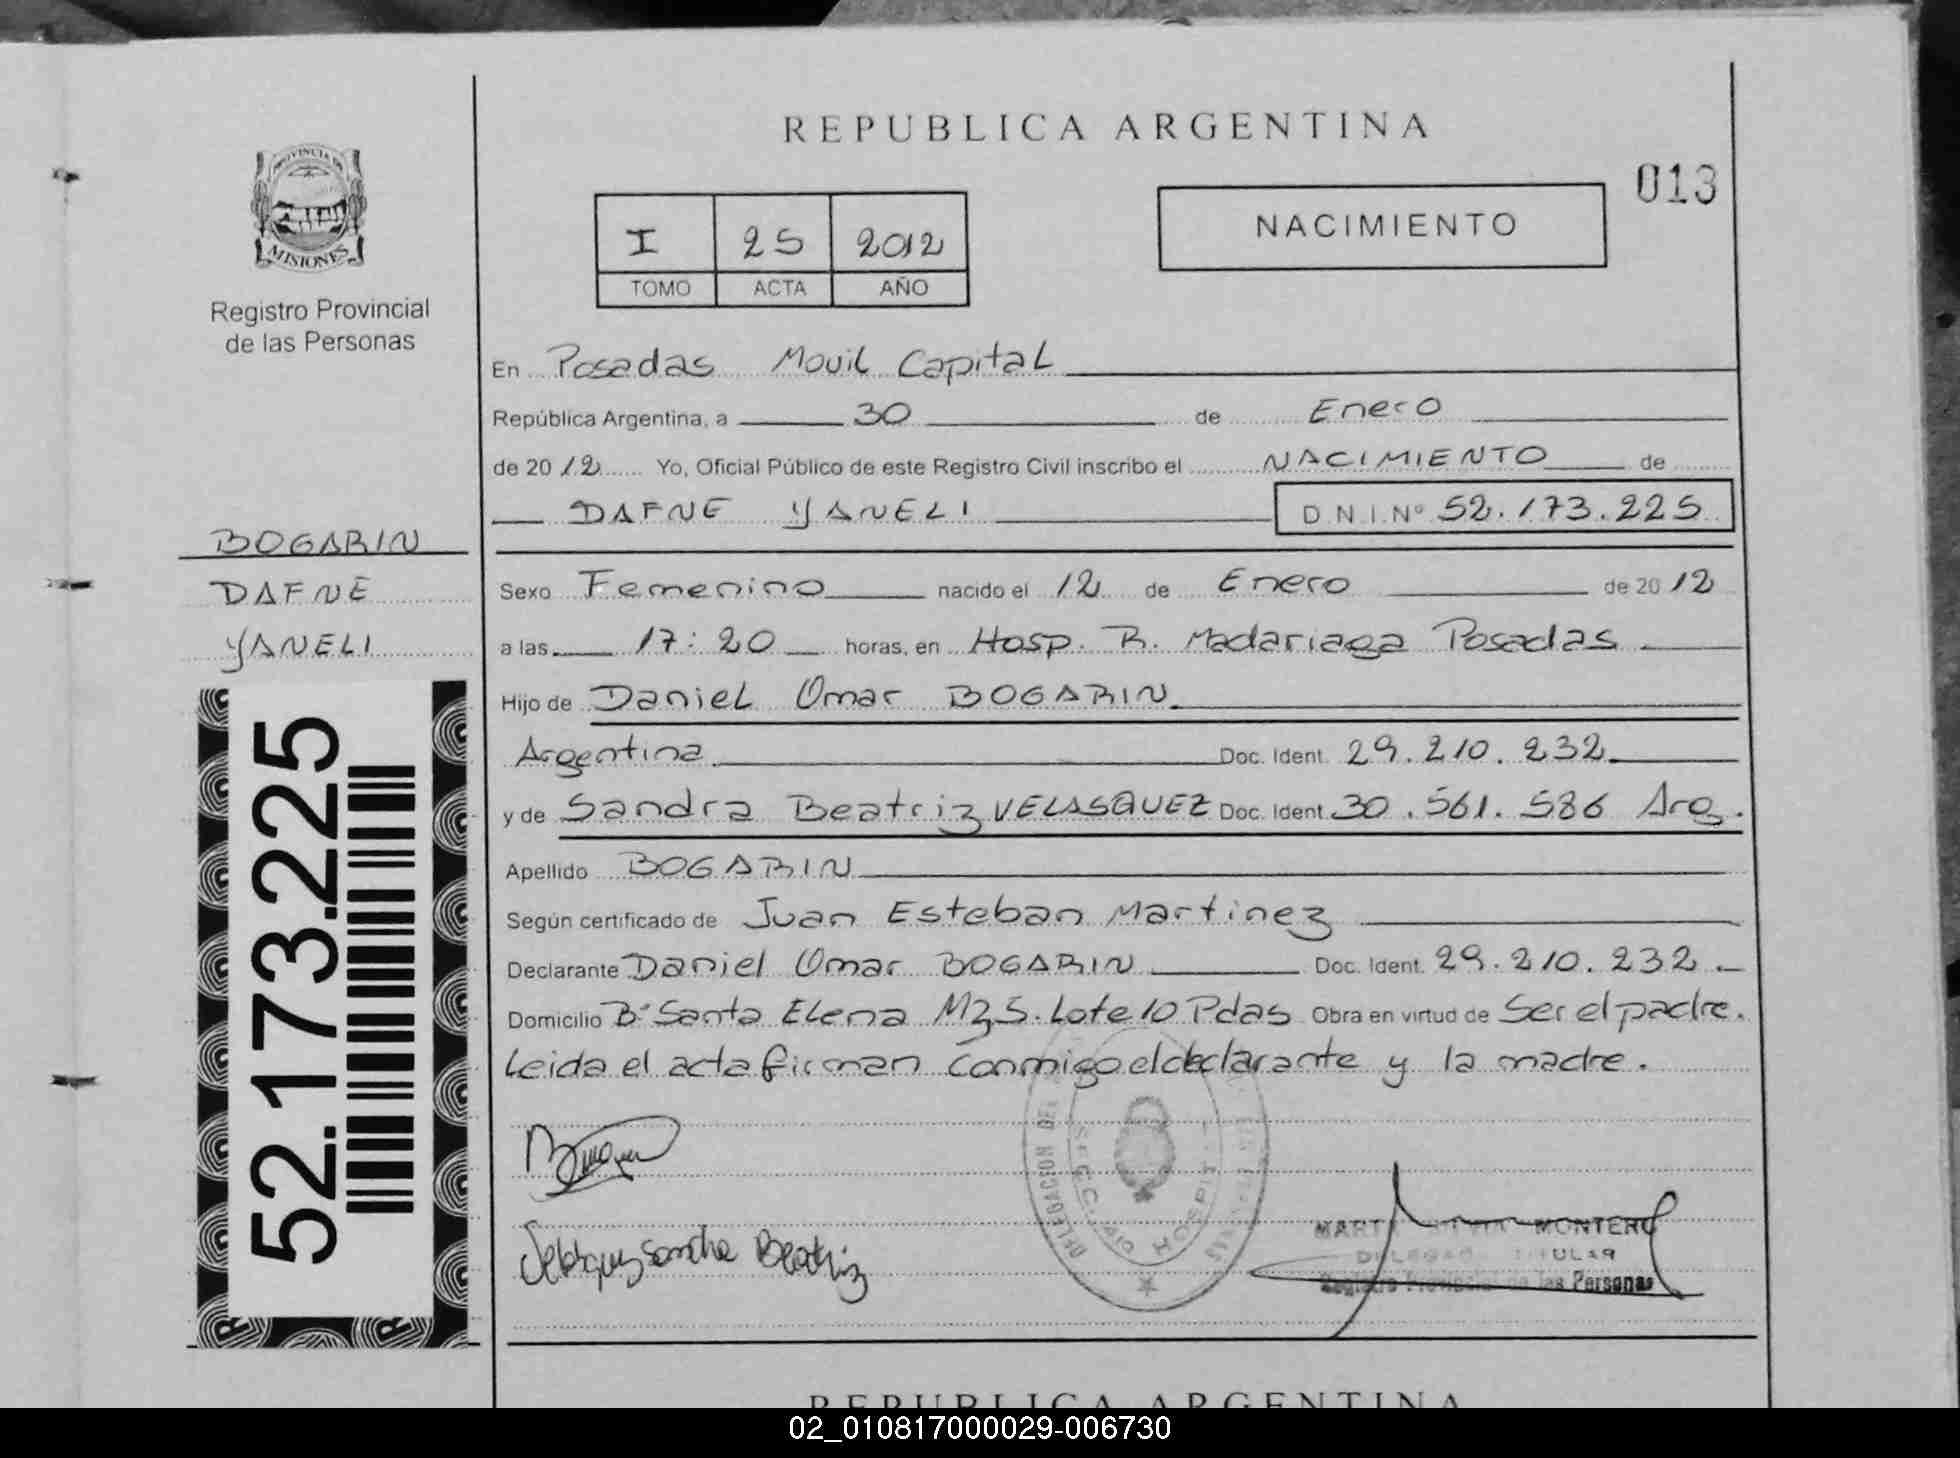 REPUBLICA ARGENTINA
013
PROVINCIA DE
MISIONES
Registro Provincial
de las Personas
I 25 2012
TOMO ACTA AÑO
NACIMIENTO
En Posadas Movil Capital
República Argentina, a 30 de Enero
de 2012 Yo, Oficial Público de este Registro Civil inscribo el NACIMIENTO de
DAFNE YANELI D.N.I.Nº 52.173.225
BOGARIN
DAFNE
YANELI
52.173.225
Sexo Femenino nacido el 12 de Enero de 2012
a las 17:20 horas, en Hosp. R. Madariaga Posadas
Hijo de Daniel Omar BOGARIN
Argentina Doc. Ident. 29.210.232
y de Sandra Beatriz VELASQUEZ Doc. Ident. 30.561.586 Arg.
Apellido BOGARIN
Según certificado de Juan Esteban Martinez
Declarante Daniel Omar BOGARIN Doc. Ident. 29.210.232
Domicilio Bº Santa Elena Mz S. Lote 10 Pdas Obra en virtud de Ser el padre.
Leida el acta firman conmigo el declarante y la madre.
DELEGACION DEL
SECC.
HOSPIT
Velasquez Sandra Beatriz
MONTERO
TITULAR
Registro Provincial de las Personas
REPUBLICA ARGENTINA
02_010817000029-006730